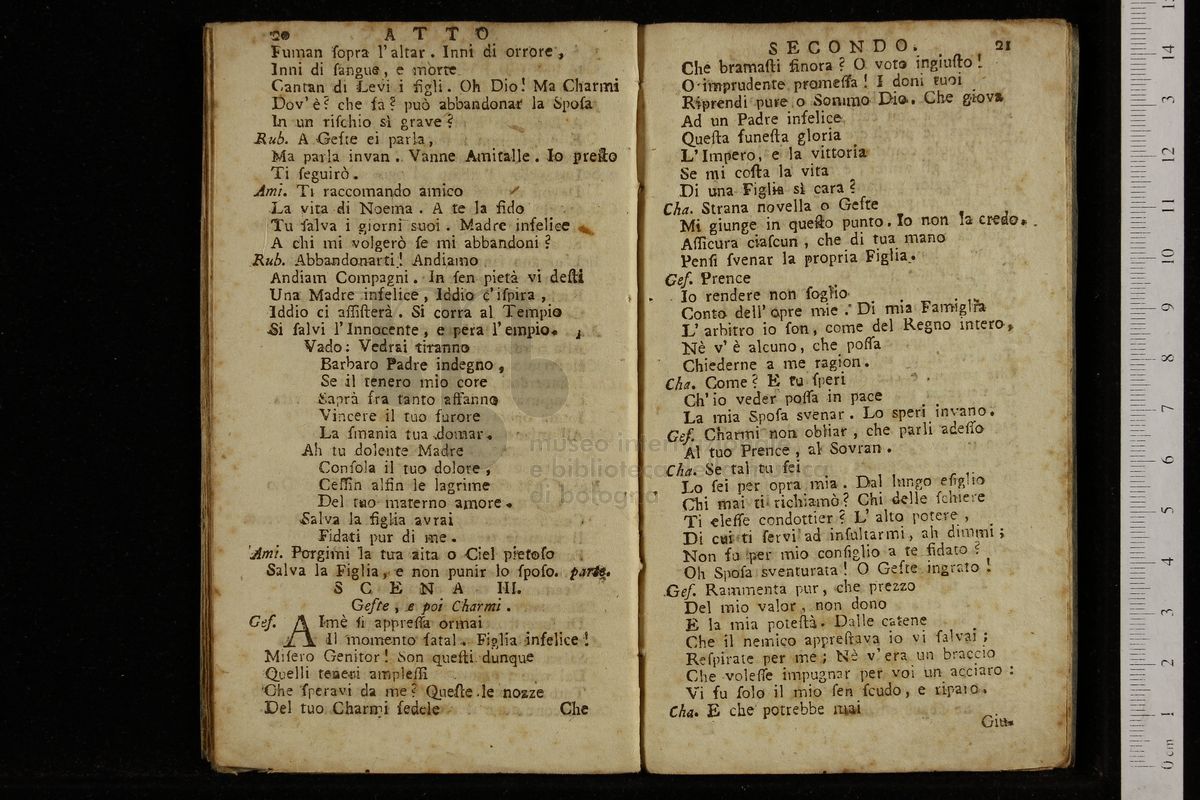 20 ATTO
Fuman ſopra l'altar. Inni di orrore,
Inni di ſangue, e morte
Cantan di Levi i figli. Oh Dio! Ma Charmi
Dov'è? che fa? può abbandonar la Spoſa
In un riſchio sì grave?
Rub. A Geſte ei parla,
Ma parla invan. Vanne Amitalle. Io preſto
Ti ſeguirò.
Ami. Ti raccomando amico
La vita di Noema. A te la fido
Tu ſalva i giorni ſuoi. Madre infelice
A chi mi volgerò ſe mi abbandoni?
Rub. Abbandonarti! Andiamo
Andiam Compagni. In ſen pietà vi deſti
Una Madre infelice, Iddio c'iſpira,
Iddio ci aſſiſterà. Si corra al Tempio
Si ſalvi l'Innocente, e pera l'empio.
Vado: Vedrai tiranno
Barbaro Padre indegno,
Se il tenero mio core
Saprà fra tanto affanno
Vincere il tuo furore
La ſmania tua domar.
Ah tu dolente Madre
Conſola il tuo dolore,
Ceſſin alfin le lagrime
Del tuo materno amore.
Salva la figlia avrai
Fidati pur di me.
Ami. Porgimi la tua aita o Ciel pietoſo
Salva la Figlia, e non punir lo ſpoſo. parte.
SCENA III.
Geſte, e poi Charmi.
Geſ. AImè ſi appreſſa ormai
Il momento fatal. Figlia infelice!
Miſero Genitor! Son queſti dunque
Quelli teneri ampleſſi
Che ſperavi da me? Queſte le nozze
Del tuo Charmi fedele
Che
SECONDO. 21
Che bramaſti finora? O voto ingiuſto!
O imprudente promeſſa! I doni tuoi
Riprendi pure o Sommo Dio. Che giova
Ad un Padre infelice
Queſta funeſta gloria
L'Impero, e la vittoria
Se mi coſta la vita
Di una Figlia sì cara?
Cha. Strana novella o Geſte
Mi giunge in queſto punto. Io non la credo.
Aſſicura ciaſcun, che di tua mano
Penſi ſvenar la propria Figlia.
Geſ. Prence
Io rendere non ſoglio
Conto dell'opre mie. Di mia Famiglia
L'arbitro io ſon, come del Regno intero,
Nè v'è alcuno, che poſſa
Chiederne a me ragion.
Cha. Come? E tu ſperi
Ch'io veder poſſa in pace
La mia Spoſa ſvenar. Lo speri invano.
Geſ. Charmi non obliar, che parli adeſſo
Al tuo Prence, al Sovran.
Cha. Se tal tu ſei
Lo ſei per opra mia. Dal lungo eſiglio
Chi mai ti richiamò? Chi delle ſchiere
Ti eleſſe condottier? L'alto potere,
Di cui ti ſervi ad inſultarmi, ah dimmi;
Non fu per mio conſiglio a te fidato?
Oh Spoſa sventurata! O Geſte ingrato!
Geſ. Rammenta pur, che prezzo
Del mio valor, non dono
E la mia poteſtà. Dalle catene
Che il nemico appreſtava io vi ſalvai;
Reſpirate per me; Nè v'era un braccio
Che voleſſe impugnar per voi un acciaro:
Vi fu ſolo il mio ſen ſcudo, e riparo.
Cha. E che potrebbe mai
Giu-
museo internazionale
e biblioteca della musica
di bologna